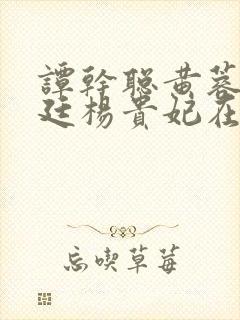 譚幹聰黄蓉
廷楊貴妃在
忘喫草莓